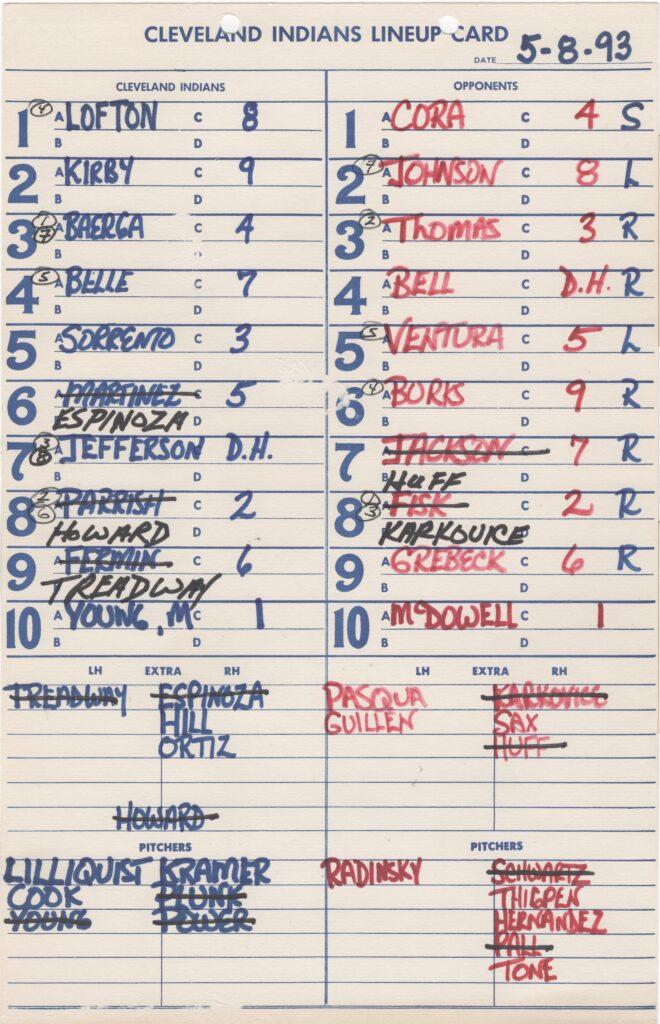 CLEVELAND INDIANS LINEUP CARD
DATE 5-8-93
CLEVELAND INDIANS OPPONENTS
1 4 A LOFTON C 8 1 A CORA C 4 S
B D B D
2 A KIRBY C 9 2 7 A JOHNSON C 8 L
B D B D
3 1 7 A BAERGA C 4 3 2 A THOMAS C 3 R
B D B D
4 5 A BELLE C 7 4 A BELL C D.H. R
B D B D
5 A SORRENTO C 3 5 5 A VENTURA C 5 L
B D B D
6 A MARTINEZ C 5 6 4 A BURKS C 9 R
ESPINOZA D B D
7 3 A JEFFERSON C D.H. 7 A JACKSON C 7 R
B D HUFF D
8 2 6 A PARRISH C 2 8 1 3 A FISK C 2 R
HOWARD D KARKOVICE D
9 A FERMIN C 6 9 A GREBECK C 6 R
TREADWAY D B D
10 A YOUNG, M C 1 10 A McDOWELL C 1
B D B D
LH EXTRA RH LH EXTRA RH
TREADWAY ESPINOZA PASQUA KARKOVICE
HILL GUILLEN SAX
ORTIZ HUFF
HOWARD
PITCHERS PITCHERS
LILLIQUIST KRAMER RADINSKY SCHWARTZ
COOK PLUNK THIGPEN
YOUNG POWER HERNANDEZ
PALL
TONE